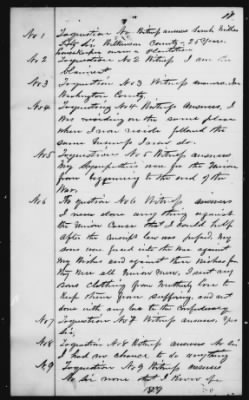 No 1 Inquestion No Witness answers Sarah
County - 25 Years
housekeeper own a plantation
No 2 Inquestion No 2 Witness I am the
Claimant
No 3 Inquestion No 3 Witness answers In
County
No 4 Inquesting No 4 Witness Answers, I
was residing on the same place
where I now reside followed the
same business I now do.
No 5 Inquestion No 5 Witness answers
My Sympathies were for the Union
from beginning to the end of the
War.
No 6 In question No 6 Witness answers
I never done any thing against
the Union Cause that I could help
After the conscript law was passed, my
sons was forced into the War against
my Wishes and against their Wishes for
they were all Union Men, I sent any
sons clothing from Motherly love to
Keep them from Suffering, and not
done with any love to the Confederacy
No 7 Inquestion No 7 Witness answers, Yes
Sir.
No 8 Inquestion No 8 Witness answers No Sir
I had no chance to do anything
No 9 Inquestion No 9 Witness answers
No Sir none that I Know of